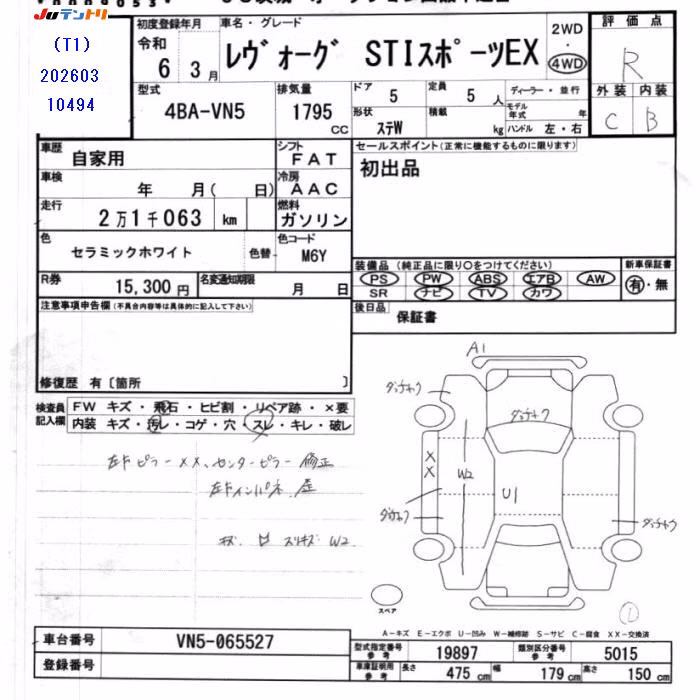 Juテントリ
(T1)
202603
10494
初度登録年月
令和
6 3月
車名・グレード
レヴォーグ STIスポーツEX
2WD
・
4WD
評価点
R
外装 内装
C B
型式
4BA-VN5
排気量
1795
CC
ドア
5
定員
5人
形状
ステW
積載
kg
ディーラー・並行
モデル年式 年
ハンドル 左・右
車歴
自家用
シフト
FAT
車検
年 月( 日)
冷房
AAC
走行
2万1千063 km
燃料
ガソリン
色
セラミックホワイト
色替
色コード
M6Y
R券
15,300円
名変通知期限
月 日
セールスポイント(正常に機能するものに限ります)
初出品
装備品(純正品に限り○をつけてください)
PS PW ABS エアB AW
SR ナビ TV カワ
新車保証書
有・無
後日品
保証書
注意事項申告欄(不具合内容等は具体的に記入して下さい)
修復歴 有〔箇所 〕
検査員記入欄
FW キズ・飛石・ヒビ割・リペア跡・×要
内装 キズ・汚レ・コゲ・穴・スレ・キレ・破レ
左Fピラー XX、センターピラー 修正
左Fインパネ 歪
キズ スリキズ W2
A1
ダッチャク
ダッチャク
XX
W2
U1
ダッチャク
ダッチャク
スペア
A-キズ E-エクボ U-凹み W-補修跡 S-サビ C-腐食 XX-交換済
車台番号
VN5-065527
登録番号
型式指定番号
参考
19897
類別区分番号
参考
5015
車庫証明用
参考
長さ 475 cm 幅 179 cm 高さ 150 cm